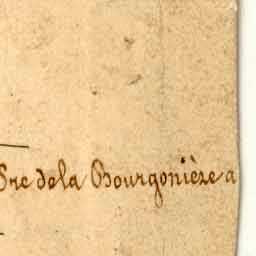 Sre de la Bourgonière a